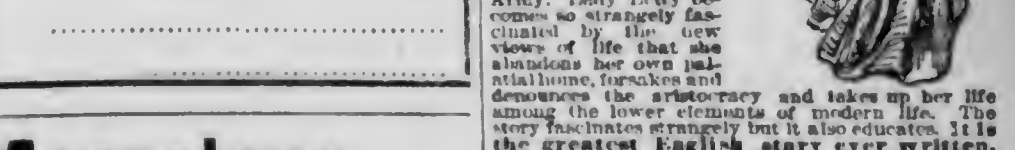 comes so strangely fas-
cinated by the new
views of life that she
abandons her own pal-
atial home, forsakes and
denounces the aristocracy and takes up her life
among the lower elements of modern life. The
story fascinates strangely but it also educates. It is
the greatest English story ever written.